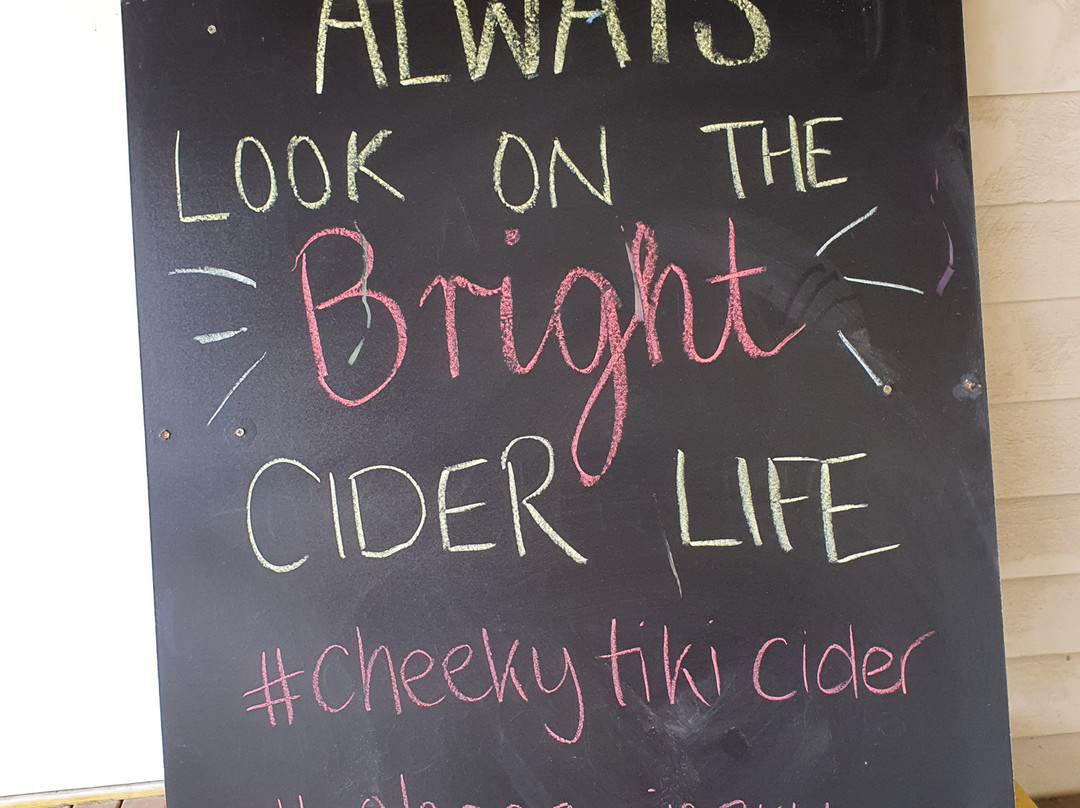 ALWAYS
LOOK ON THE
Bright
CIDER LIFE
#cheeky tiki cider